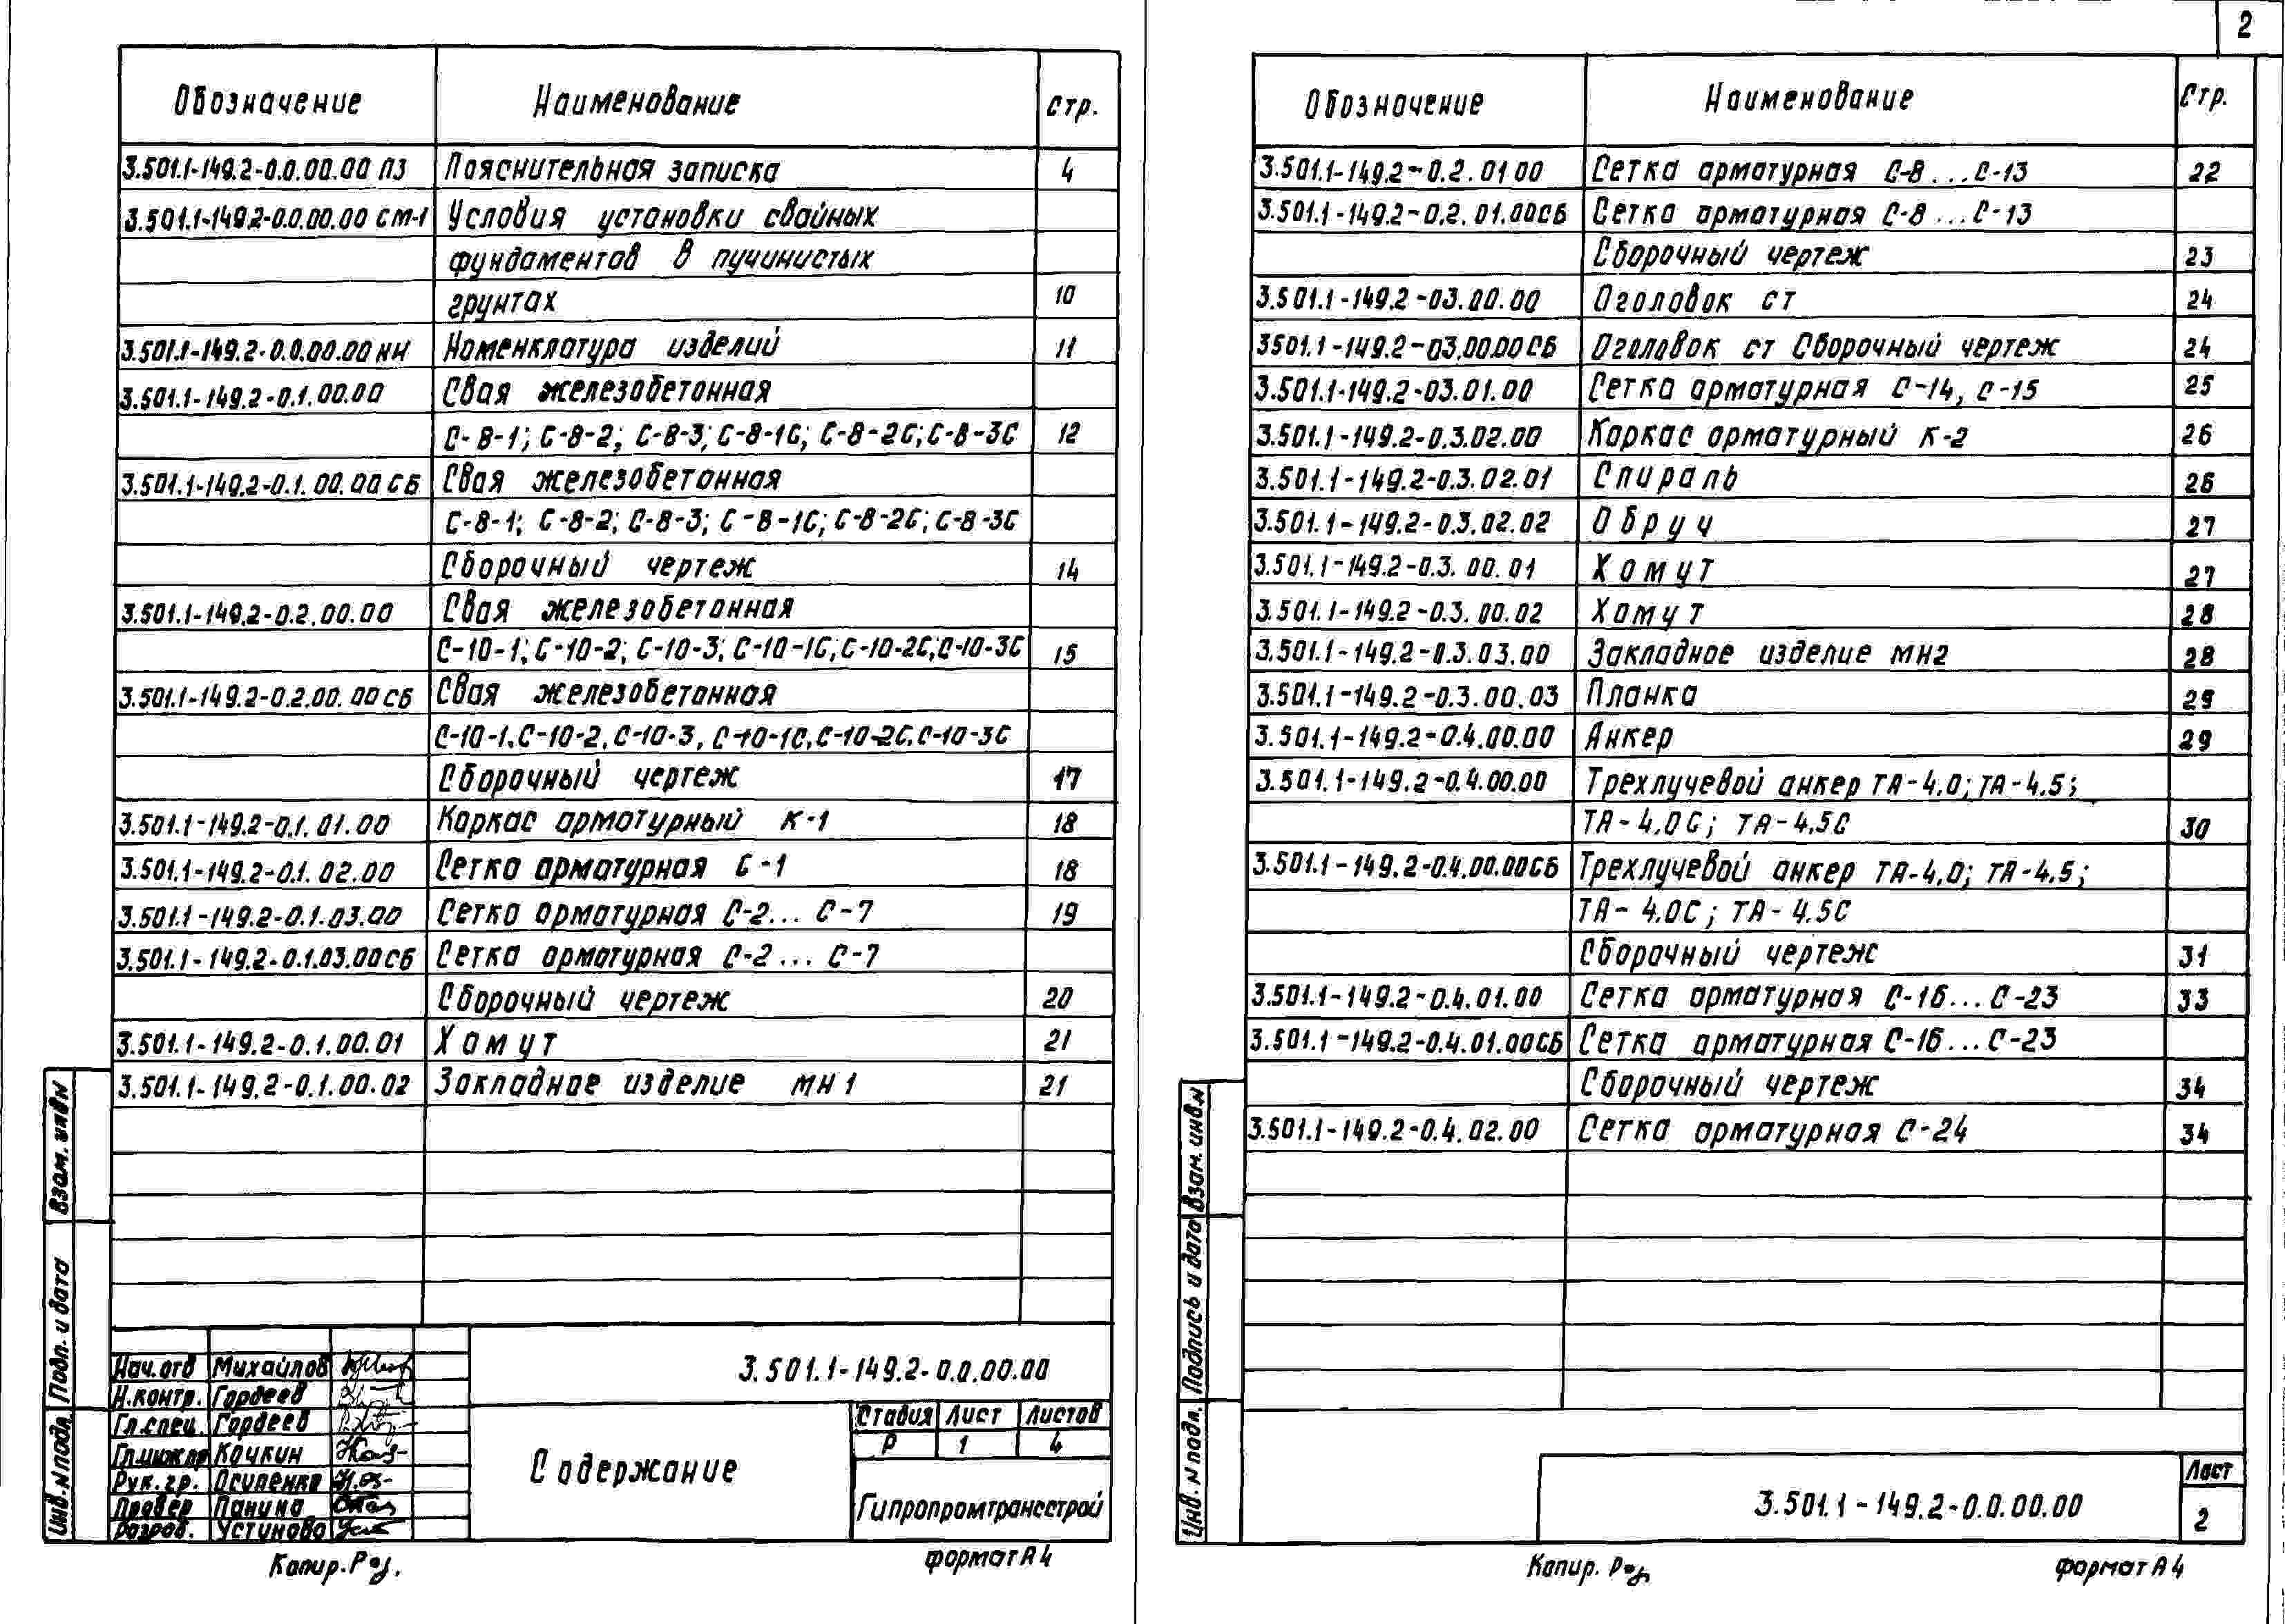 Обозначение Наименование Стр.
3.501.1-149.2-0.0.00.00 ПЗ Пояснительная записка 4
3.501.1-149.2-0.0.00.00 СМ-1 Условия установки свайных
фундаментов в пучинистых
грунтах 10
3.501.1-149.2-0.0.00.00 НИ Номенклатура изделий 11
3.501.1-149.2-0.1.00.00 Свая железобетонная
С-8-1; С-8-2; С-8-3; С-8-1С; С-8-2С; С-8-3С 12
3.501.1-149.2-0.1.00.00 СБ Свая железобетонная
С-8-1; С-8-2; С-8-3; С-8-1С; С-8-2С; С-8-3С
Сборочный чертеж 14
3.501.1-149.2-0.2.00.00 Свая железобетонная
С-10-1; С-10-2; С-10-3; С-10-1С; С-10-2С; С-10-3С 15
3.501.1-149.2-0.2.00.00 СБ Свая железобетонная
С-10-1, С-10-2, С-10-3, С-10-1С, С-10-2С, С-10-3С
Сборочный чертеж 17
3.501.1-149.2-0.1.01.00 Каркас арматурный К-1 18
3.501.1-149.2-0.1.02.00 Сетка арматурная С-1 18
3.501.1-149.2-0.1.03.00 Сетка арматурная С-2... С-7 19
3.501.1-149.2-0.1.03.00СБ Сетка арматурная С-2... С-7
Сборочный чертеж 20
3.501.1-149.2-0.1.00.01 Хомут 21
3.501.1-149.2-0.1.00.02 Закладное изделие МН1 21
Взам. инв. N
Подп. и дата
Инв. N подл.
Нач.отд Михайлов
Н.контр. Гордеев
Гл.спец. Гордеев
Гл.инж.пр Кочкин
Рук.гр. Осипенко
Провер Панина
Разраб. Устинова
3.501.1-149.2-0.0.00.00
Содержание
Стадия Лист Листов
Р 1 4
Гипропромтрансстрой
Копир.
формат А4
2
Обозначение Наименование Стр.
3.501.1-149.2-0.2.01 00 Сетка арматурная С-8...С-13 22
3.501.1-149.2-0.2.01.00СБ Сетка арматурная С-8...С-13
Сборочный чертеж 23
3.501.1-149.2-03.00.00 Оголовок ст 24
3501.1-149.2-03.00.00СБ Оголовок ст Сборочный чертеж 24
3.501.1-149.2-03.01.00 Сетка арматурная С-14, С-15 25
3.501.1-149.2-0.3.02.00 Каркас арматурный К-2 26
3.501.1-149.2-0.3.02.01 Спираль 26
3.501.1-149.2-0.3.02.02 Обруч 27
3.501.1-149.2-0.3.00.01 Хомут 27
3.501.1-149.2-0.3.00.02 Хомут 28
3.501.1-149.2-0.3.03.00 Закладное изделие МН2 28
3.501.1-149.2-0.3.00.03 Планка 29
3.501.1-149.2-0.4.00.00 Анкер 29
3.501.1-149.2-0.4.00.00 Трехлучевой анкер ТА-4.0; ТА-4.5;
ТА-4.0С; ТА-4.5С 30
3.501.1-149.2-0.4.00.00СБ Трехлучевой анкер ТА-4.0; ТА-4.5;
ТА-4.0С; ТА-4.5С
Сборочный чертеж 31
3.501.1-149.2-0.4.01.00 Сетка арматурная С-16...С-23 33
3.501.1-149.2-0.4.01.00СБ Сетка арматурная С-16...С-23
Сборочный чертеж 34
3.501.1-149.2-0.4.02.00 Сетка арматурная С-24 34
Взам. инв. N
Подпись и дата
Инв. N подл.
3.501.1-149.2-0.0.00.00
Лист
2
Копир.
формат А4